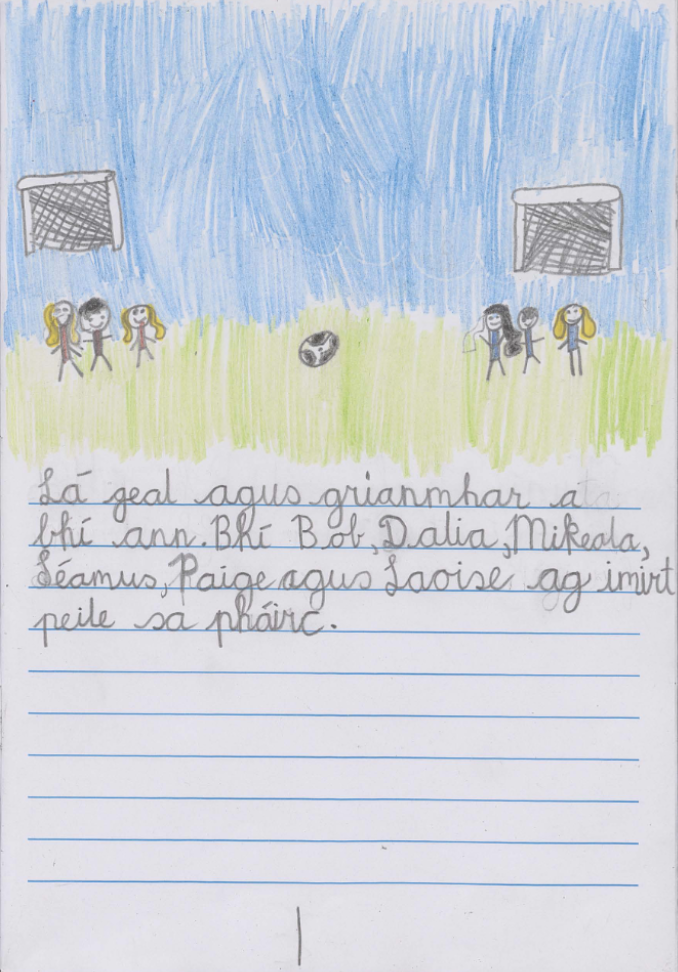 Lá geal agus grianmhar a
bhí ann. Bhí Bob, Dalia, Mikeala,
Séamus, Paige agus Laoise ag imirt
peile sa pháirc.
1